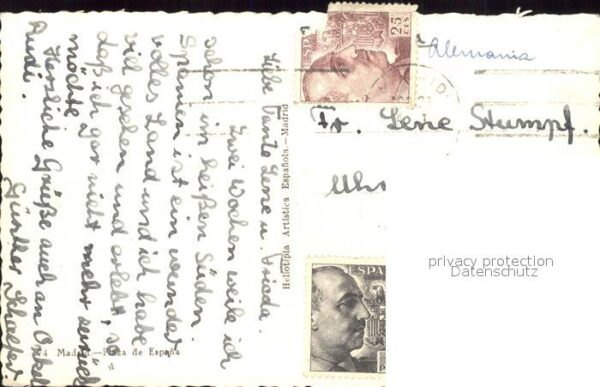 Liebe Tante Lene u. Frieda.
Zwei Wochen weile ich
schon im heißen Süden.
Spanien ist ein wunder
volles Land und ich habe
viel gesehen und erlebt, so
daß ich gar nicht mehr zurück
möchte.
Herzliche Grüße auch an Onkel
Rudi.
Günther
Madrid.—Plaza de España
Heliotipia Artística Española.—Madrid
ESPAÑA
25
CTS
Alemania
Fr. Lene Stumpf.
privacy protection
Datenschutz
ESPAÑA